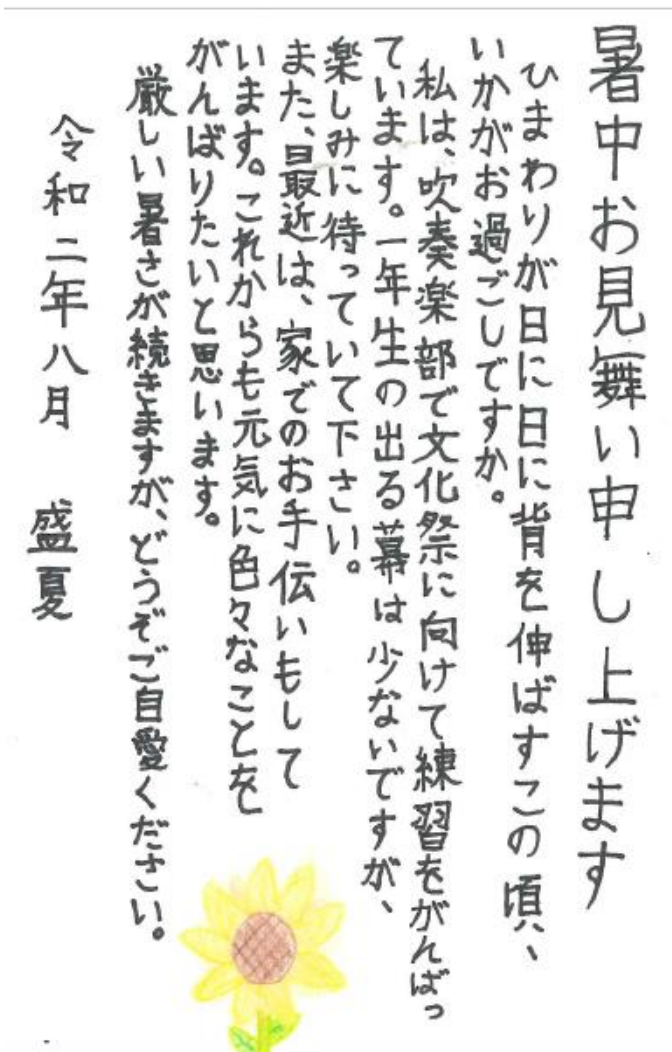 暑中お見舞い申し上げます
ひまわりが日に日に背を伸ばすこの頃、
いかがお過ごしですか。
私は、吹奏楽部で文化祭に向けて練習をがんばっ
ています。一年生の出る幕は少ないですが、
楽しみに待っていて下さい。
また、最近は、家でのお手伝いもして
います。これからも元気に色々なことを
がんばりたいと思います。
厳しい暑さが続きますが、どうぞご自愛ください。
令和二年八月 盛夏